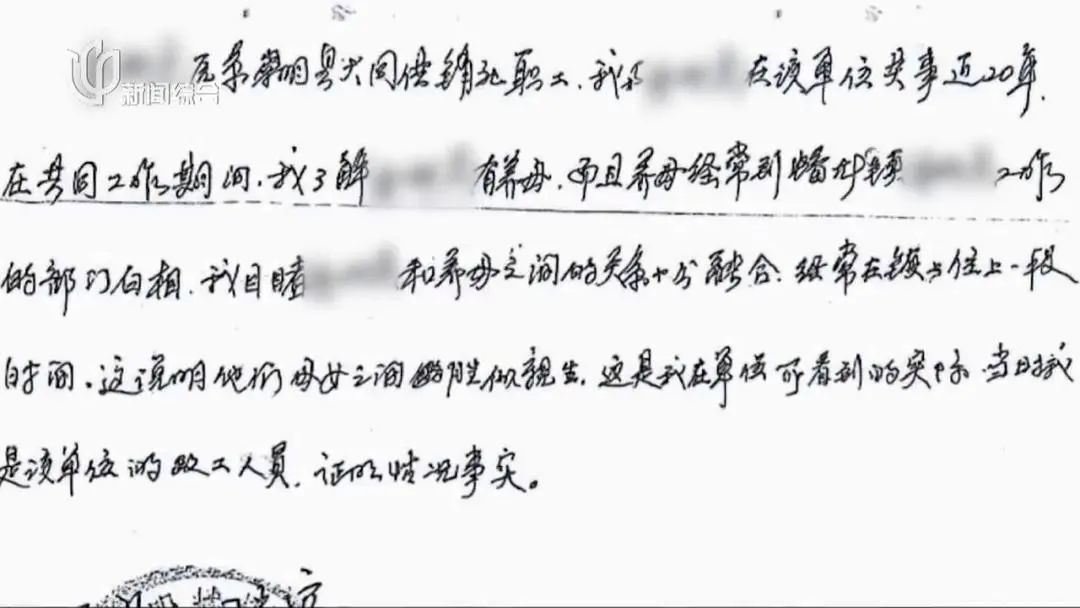 新闻综合
原系崇明县大同供销社职工,我与 在该单位共事近20年,
在共同工作期间,我了解 有养母,而且养母经常到 镇 工作
的部门白相,我目睹 和养母之间的关系十分融合;经常在镇上住上一段
时间。这说明他们母女之间 胜似亲生,这是我在单位所看到的实际,当时我
是该单位的政工人员,证明情况事实。